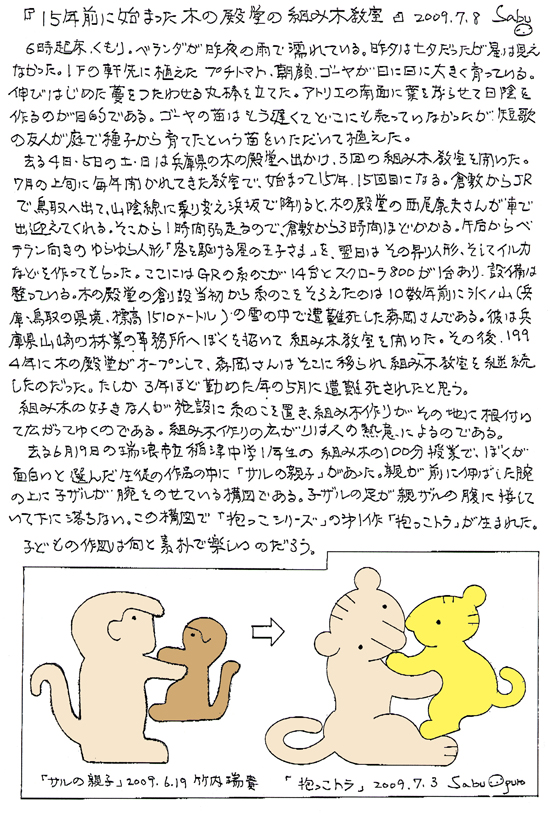 『15年前に始まった木の殿堂の組み木教室』 2009.7.8 Sabu
6時起床、くもり。ベランダが昨夜の雨で濡れている。昨夕は七夕だったが星は見え
なかった。1Fの軒先に植えたプチトマト、朝顔、ゴーヤが日に日に大きく育っている。
伸びはじめた蔓をつたわせる丸棒を立てた。アトリエの南面に葉を茂らせて日陰を
作るのが目的である。ゴーヤの苗はもう遅くてどこにも売っていなかったが、短歌
の友人が庭で種子から育てたという苗をいただいて植えた。
去る4日・5日の土・日は兵庫県の木の殿堂へ出かけ、3回の組み木教室を開いた。
7月の上旬に毎年開かれてきた教室で、始まって15年、15回目になる。倉敷からJR
で鳥取へ出て、山陰線に乗り変え浜坂で降りると、木の殿堂の西尾康夫さんが車で
出迎えてくれる。そこから1時間弱走るので、倉敷から3時間ほどかかる。午后からベ
テラン向きのゆらゆら人形「昼を駆ける星の王子さま」を、翌日はその昇り人形、そしてイルカ
などを作ってもらった。ここにはGRの糸のこが14台とスクローラ800が1台あり、設備は
整っている。木の殿堂の創設当初から糸のこをそろえたのは10数年前に氷ノ山(兵
庫、鳥取の県境、標高1510メートル)の雪の中で遭難死した森岡さんである。彼は兵
庫県山崎の林業の事務所へぼくを招いて組み木教室を開いた。その後、199
4年に木の殿堂がオープンして、森岡さんはそこに移られ組み木教室を継続
したのだった。たしか3年ほど勤めた年の5月に遭難死されたと思う。
組み木の好きな人が施設に糸のこを置き、組み木作りがその地に根付い
て広がってゆくのである。組み木作りの広がりは人の熱意によるのである。
去る6月19日の瑞浪市立稲津中学1年生の組み木の100分授業で、ぼくが
面白いと選んだ生徒の作品の中に「サルの親子」があった。親が前に伸ばした腕
の上に子ザルが腕をのせている構図である。子ザルの足が親ザルの腹に接して
いて下に落ちない。この構図で「抱っこシリーズ」の第1作「抱っこトラ」が生まれた。
子どもの作図は何と素朴で楽しいのだろう。
「サルの親子」2009.6.19 竹内瑞貴
「抱っこトラ」2009.7.3 Sabu Oguro